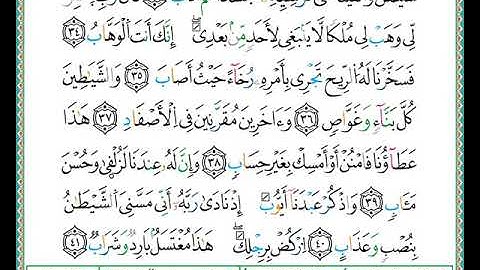 لِّى وَهَبْ لِى مُلْكًا لَّا يَنۢبَغِى لِأَحَدٍ مِّنۢ بَعْدِىٓ ۖ إِنَّكَ أَنتَ ٱلْوَهَّابُ ٣٥
فَسَخَّرْنَا لَهُ ٱلرِّيحَ تَجْرِى بِأَمْرِهِۦ رُخَآءً حَيْثُ أَصَابَ ٣٦ وَٱلشَّيَٰطِينَ
كُلَّ بَنَّآءٍ وَغَوَّاصٍ ٣٧ وَءَاخَرِينَ مُقَرَّنِينَ فِى ٱلْأَصْفَادِ ٣٨ هَٰذَا
عَطَآؤُنَا فَٱمْنُنْ أَوْ أَمْسِكْ بِغَيْرِ حِسَابٍ ٣٩ وَإِنَّ لَهُۥ عِندَنَا لَزُلْفَىٰ وَحُسْنَ
مَـَٔابٍ ٤٠ وَٱذْكُرْ عَبْدَنَآ أَيُّوبَ إِذْ نَادَىٰ رَبَّهُۥٓ أَنِّى مَسَّنِىَ ٱلشَّيْطَٰنُ
بِنُصْبٍ وَعَذَابٍ ٤١ ٱرْكُضْ بِرِجْلِكَ ۖ هَٰذَا مُغْتَسَلٌۢ بَارِدٌ وَشَرَابٌ ٤٢